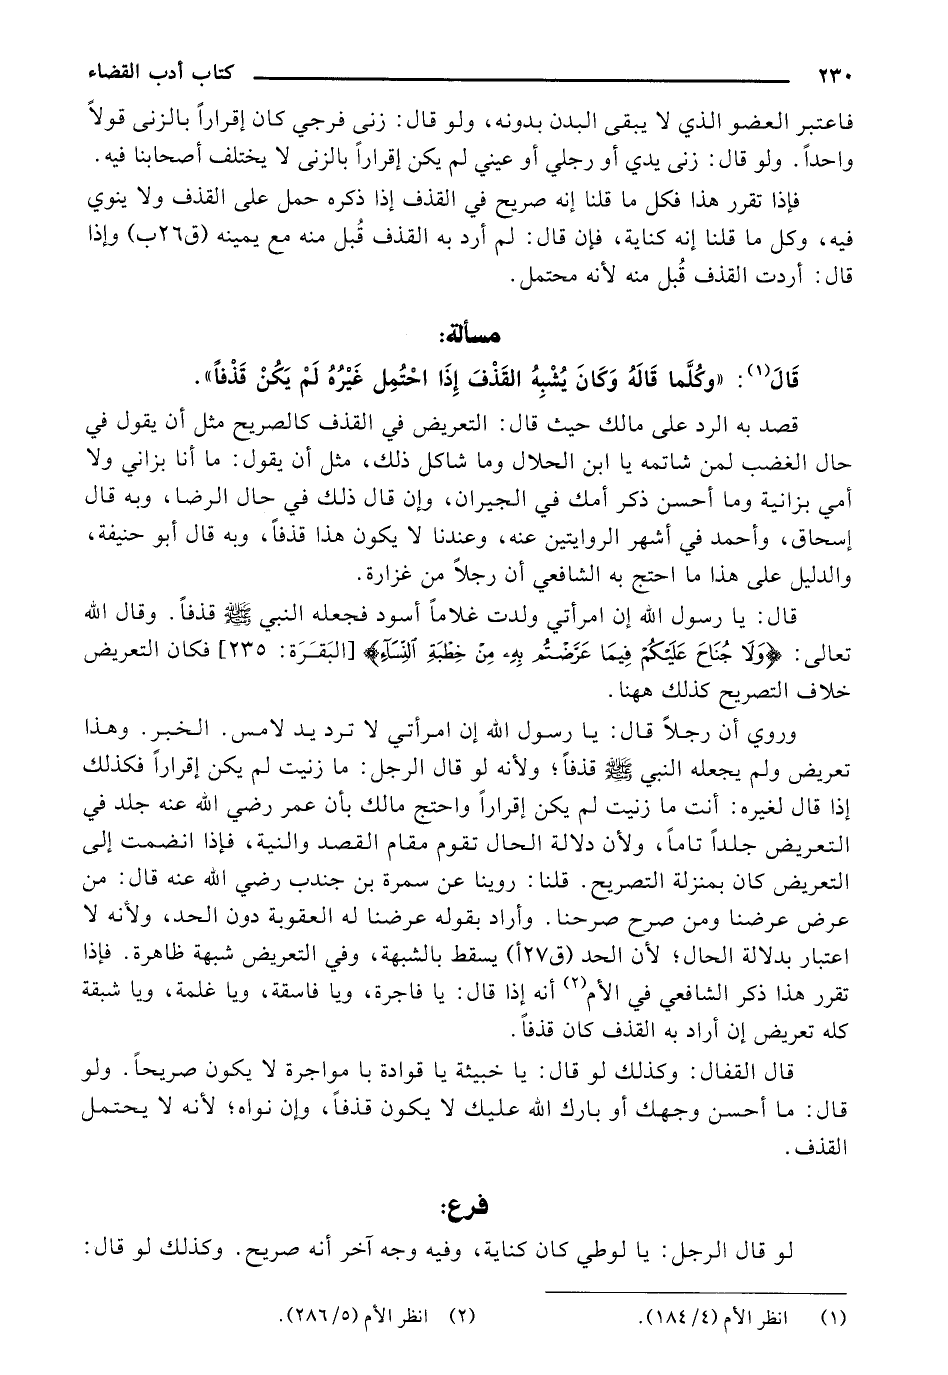 ٢٣٠ كتاب أدب القضاء
فاعتبر العضو الذي لا يبقى البدن بدونه، ولو قال: زنى فرجي كان إقراراً بالزنى قولاً
واحداً. ولو قال: زنى يدي أو رجلي أو عيني لم يكن إقراراً بالزنى لا يختلف أصحابنا فيه.
فإذا تقرر هذا فكل ما قلنا إنه صريح في القذف إذا ذكره حمل على القذف ولا ينوي
فيه، وكل ما قلنا إنه كناية، فإن قال: لم أرد به القذف قُبل منه مع يمينه (ق٢٦ب) وإذا
قال: أردت القذف قُبل منه لأنه محتمل.
مسألة:
قَالَ(١): «وكُلَّما قَالَهُ وَكَانَ يُشْبِهُ القَذْفَ إِذَا احْتُمِل غَيْرُهُ لَمْ يَكُنْ قَذْفاً».
قصد به الرد على مالك حيث قال: التعريض في القذف كالصريح مثل أن يقول في
حال الغضب لمن شاتمه يا ابن الحلال وما شاكل ذلك، مثل أن يقول: ما أنا بزاني ولا
أمي بزانية وما أحسن ذكر أمك في الجيران، وإن قال ذلك في حال الرضا، وبه قال
إسحاق، وأحمد في أشهر الروايتين عنه، وعندنا لا يكون هذا قذفاً، وبه قال أبو حنيفة،
والدليل على هذا ما احتج به الشافعي أن رجلاً من غزارة.
قال: يا رسول الله إن امرأتي ولدت غلاماً أسود فجعله النبي ﷺ قذفاً. وقال الله
تعالى: ﴿وَلَا جُنَاحَ عَلَيْكُمْ فِيمَا عَرَّضْتُم بِهِۦ مِنْ خِطْبَةِ ٱلنِّسَآءِ﴾ [البَقَرَة: ٢٣٥] فكان التعريض
خلاف التصريح كذلك ههنا.
وروي أن رجلاً قال: يا رسول الله إن امرأتي لا ترد يد لامس. الخبر. وهذا
تعريض ولم يجعله النبي ﷺ قذفاً؛ ولأنه لو قال الرجل: ما زنيت لم يكن إقراراً فكذلك
إذا قال لغيره: أنت ما زنيت لم يكن إقراراً واحتج مالك بأن عمر رضي الله عنه جلد في
التعريض جلداً تاماً، ولأن دلالة الحال تقوم مقام القصد والنية، فإذا انضمت إلى
التعريض كان بمنزلة التصريح. قلنا: روينا عن سمرة بن جندب رضي الله عنه قال: من
عرض عرضنا ومن صرح صرحنا. وأراد بقوله عرضنا له العقوبة دون الحد، ولأنه لا
اعتبار بدلالة الحال؛ لأن الحد (ق٢٧أ) يسقط بالشبهة، وفي التعريض شبهة ظاهرة. فإذا
تقرر هذا ذكر الشافعي في الأم(٢) أنه إذا قال: يا فاجرة، ويا فاسقة، ويا غلمة، ويا شبقة
كله تعريض إن أراد به القذف كان قذفاً.
قال القفال: وكذلك لو قال: يا خبيثة يا قوادة با مواجرة لا يكون صريحاً. ولو
قال: ما أحسن وجهك أو بارك الله عليك لا يكون قذفاً، وإن نواه؛ لأنه لا يحتمل
القذف.
فرع:
لو قال الرجل: يا لوطي كان كناية، وفيه وجه آخر أنه صريح. وكذلك لو قال:
(١) انظر الأم (٤/ ١٨٤). (٢) انظر الأم (٥/ ٢٨٦).